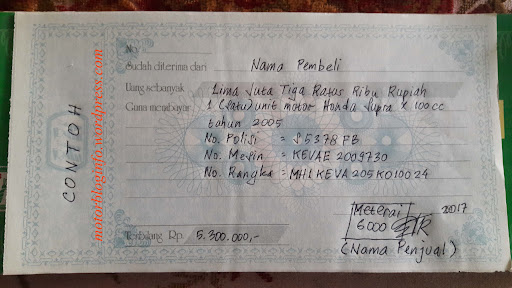 No.
Sudah diterima dari Nama Pembeli
Uang sebanyak Lima Juta Tiga Ratus Ribu Rupiah
Guna membayar 1 (Satu) unit motor Honda Supra X 100cc
tahun 2005
No. Polisi = S 5378 FB
No. Mesin = KEVAE 2009730
No. Rangka = MH1KEVA205K010024
Meterai 2017
6000
Terbilang Rp. 5.300.000,-
(Nama Penjual)
CONTOH
motorbloginfo.wordpress.com